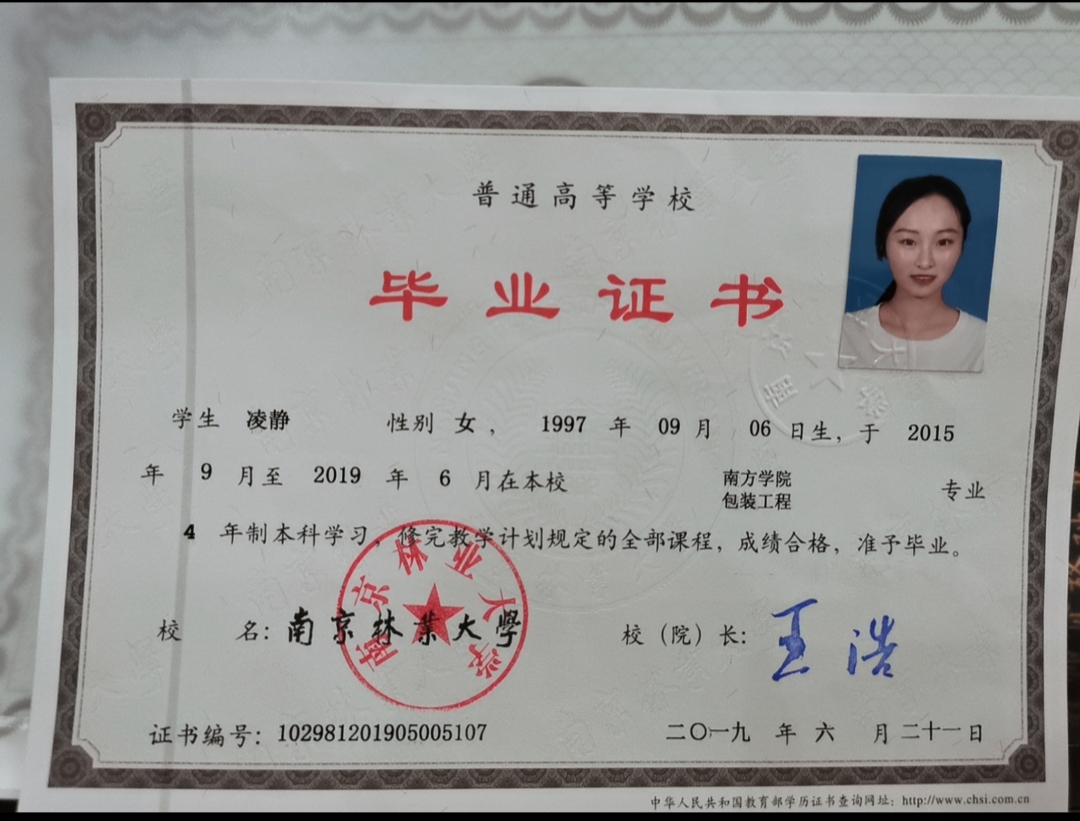 普通高等学校
毕业证书
学生 凌静 性别 女， 1997 年 09 月 06 日生，于 2015
年 9 月至 2019 年 6 月在本校 南方学院 包装工程 专业
4 年制本科学习，修完教学计划规定的全部课程，成绩合格，准予毕业。
南京林业大学
校 名：南京林業大學 校（院）长：王浩
证书编号：102981201905005107 二〇一九 年 六 月 二十一日
中华人民共和国教育部学历证书查询网址：http://www.chsi.com.cn